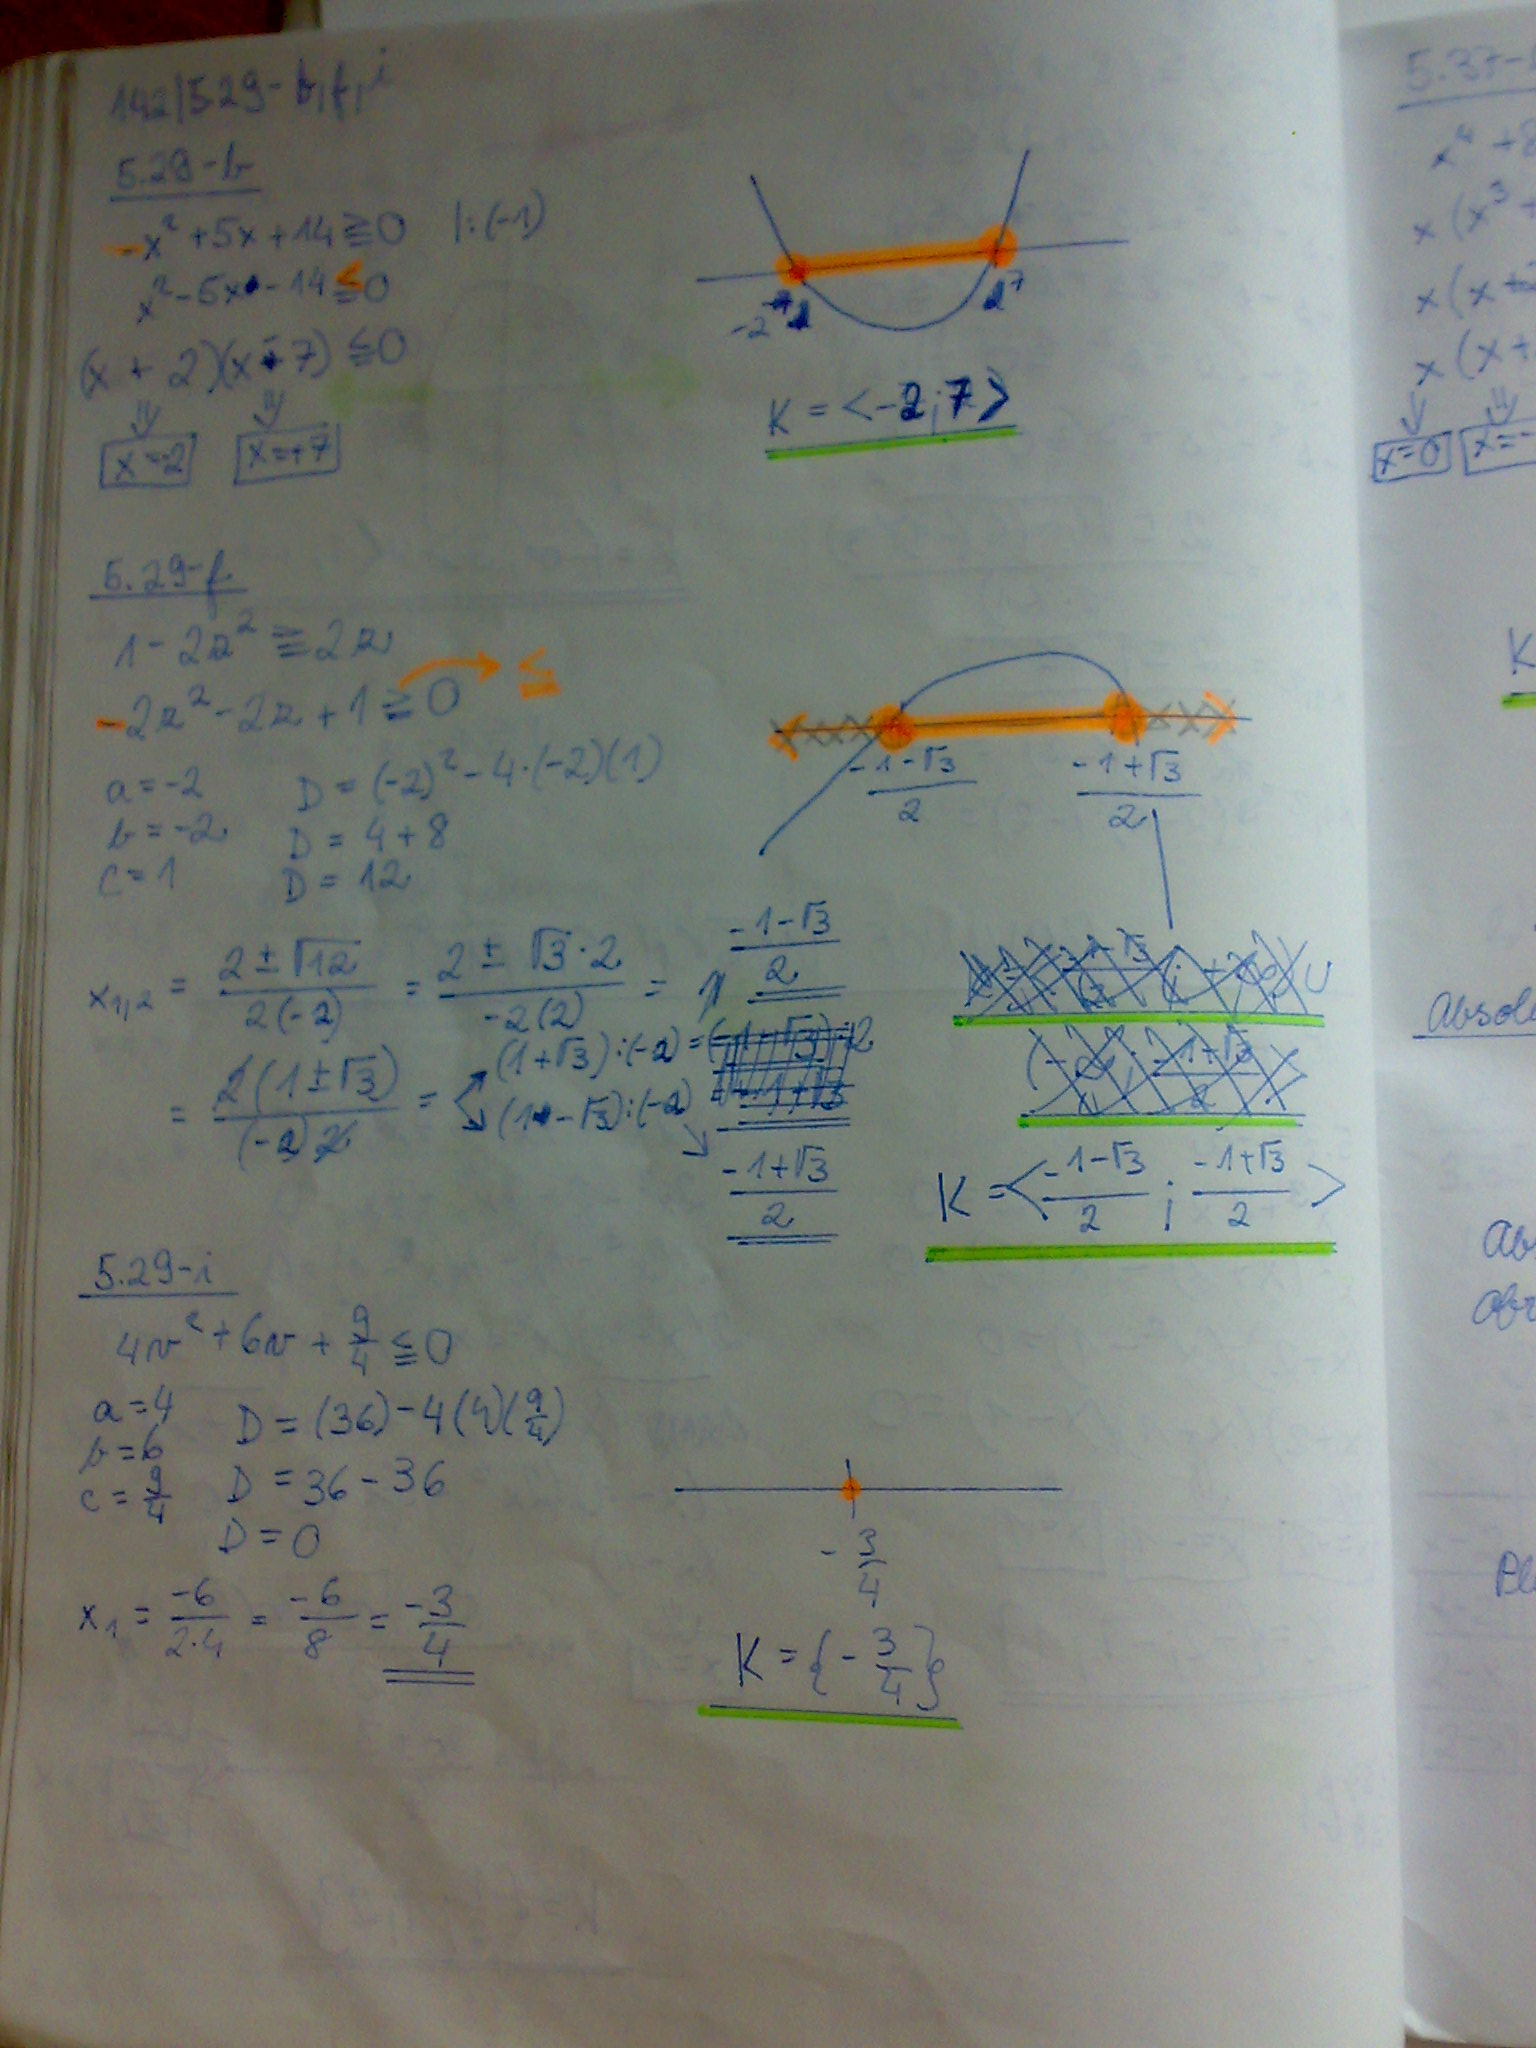 142/5.29-b,f,i
5.29-b
-x² +5x +14 ≧ 0 |:(-1)
x² -5x -14 ≦ 0
(x + 2)(x-7) ≦ 0
x=-2 x=+7
-2 7
K = <-2;7>
5.29-f
1-2z² ≧ 2z
-2z² -2z +1 ≧ 0 → ≦
a=-2 D = (-2)² -4·(-2)(1)
b=-2 D = 4+8
c=1 D = 12
(-1-√3)/2 (-1+√3)/2
x₁,₂ = (2±√12)/(2(-2)) = (2±√3·2)/(-2(2)) = (-1-√3)/2
= (2(1±√3))/((-2)2) = (1+√3):(-2) =
(1-√3):(-2)
(-1+√3)/2
K = <(-1-√3)/2 ; (-1+√3)/2>
5.29-i
4v² +6v + 9/4 ≦ 0
a=4 D = (36) -4(4)(9/4)
b=6 D = 36-36
c=9/4 D = 0
-3/4
x₁ = -6/2·4 = -6/8 = -3/4
K = {-3/4}
x⁴ +8
x (x³ +
x (x+
x (x+
x=0 x=-
K